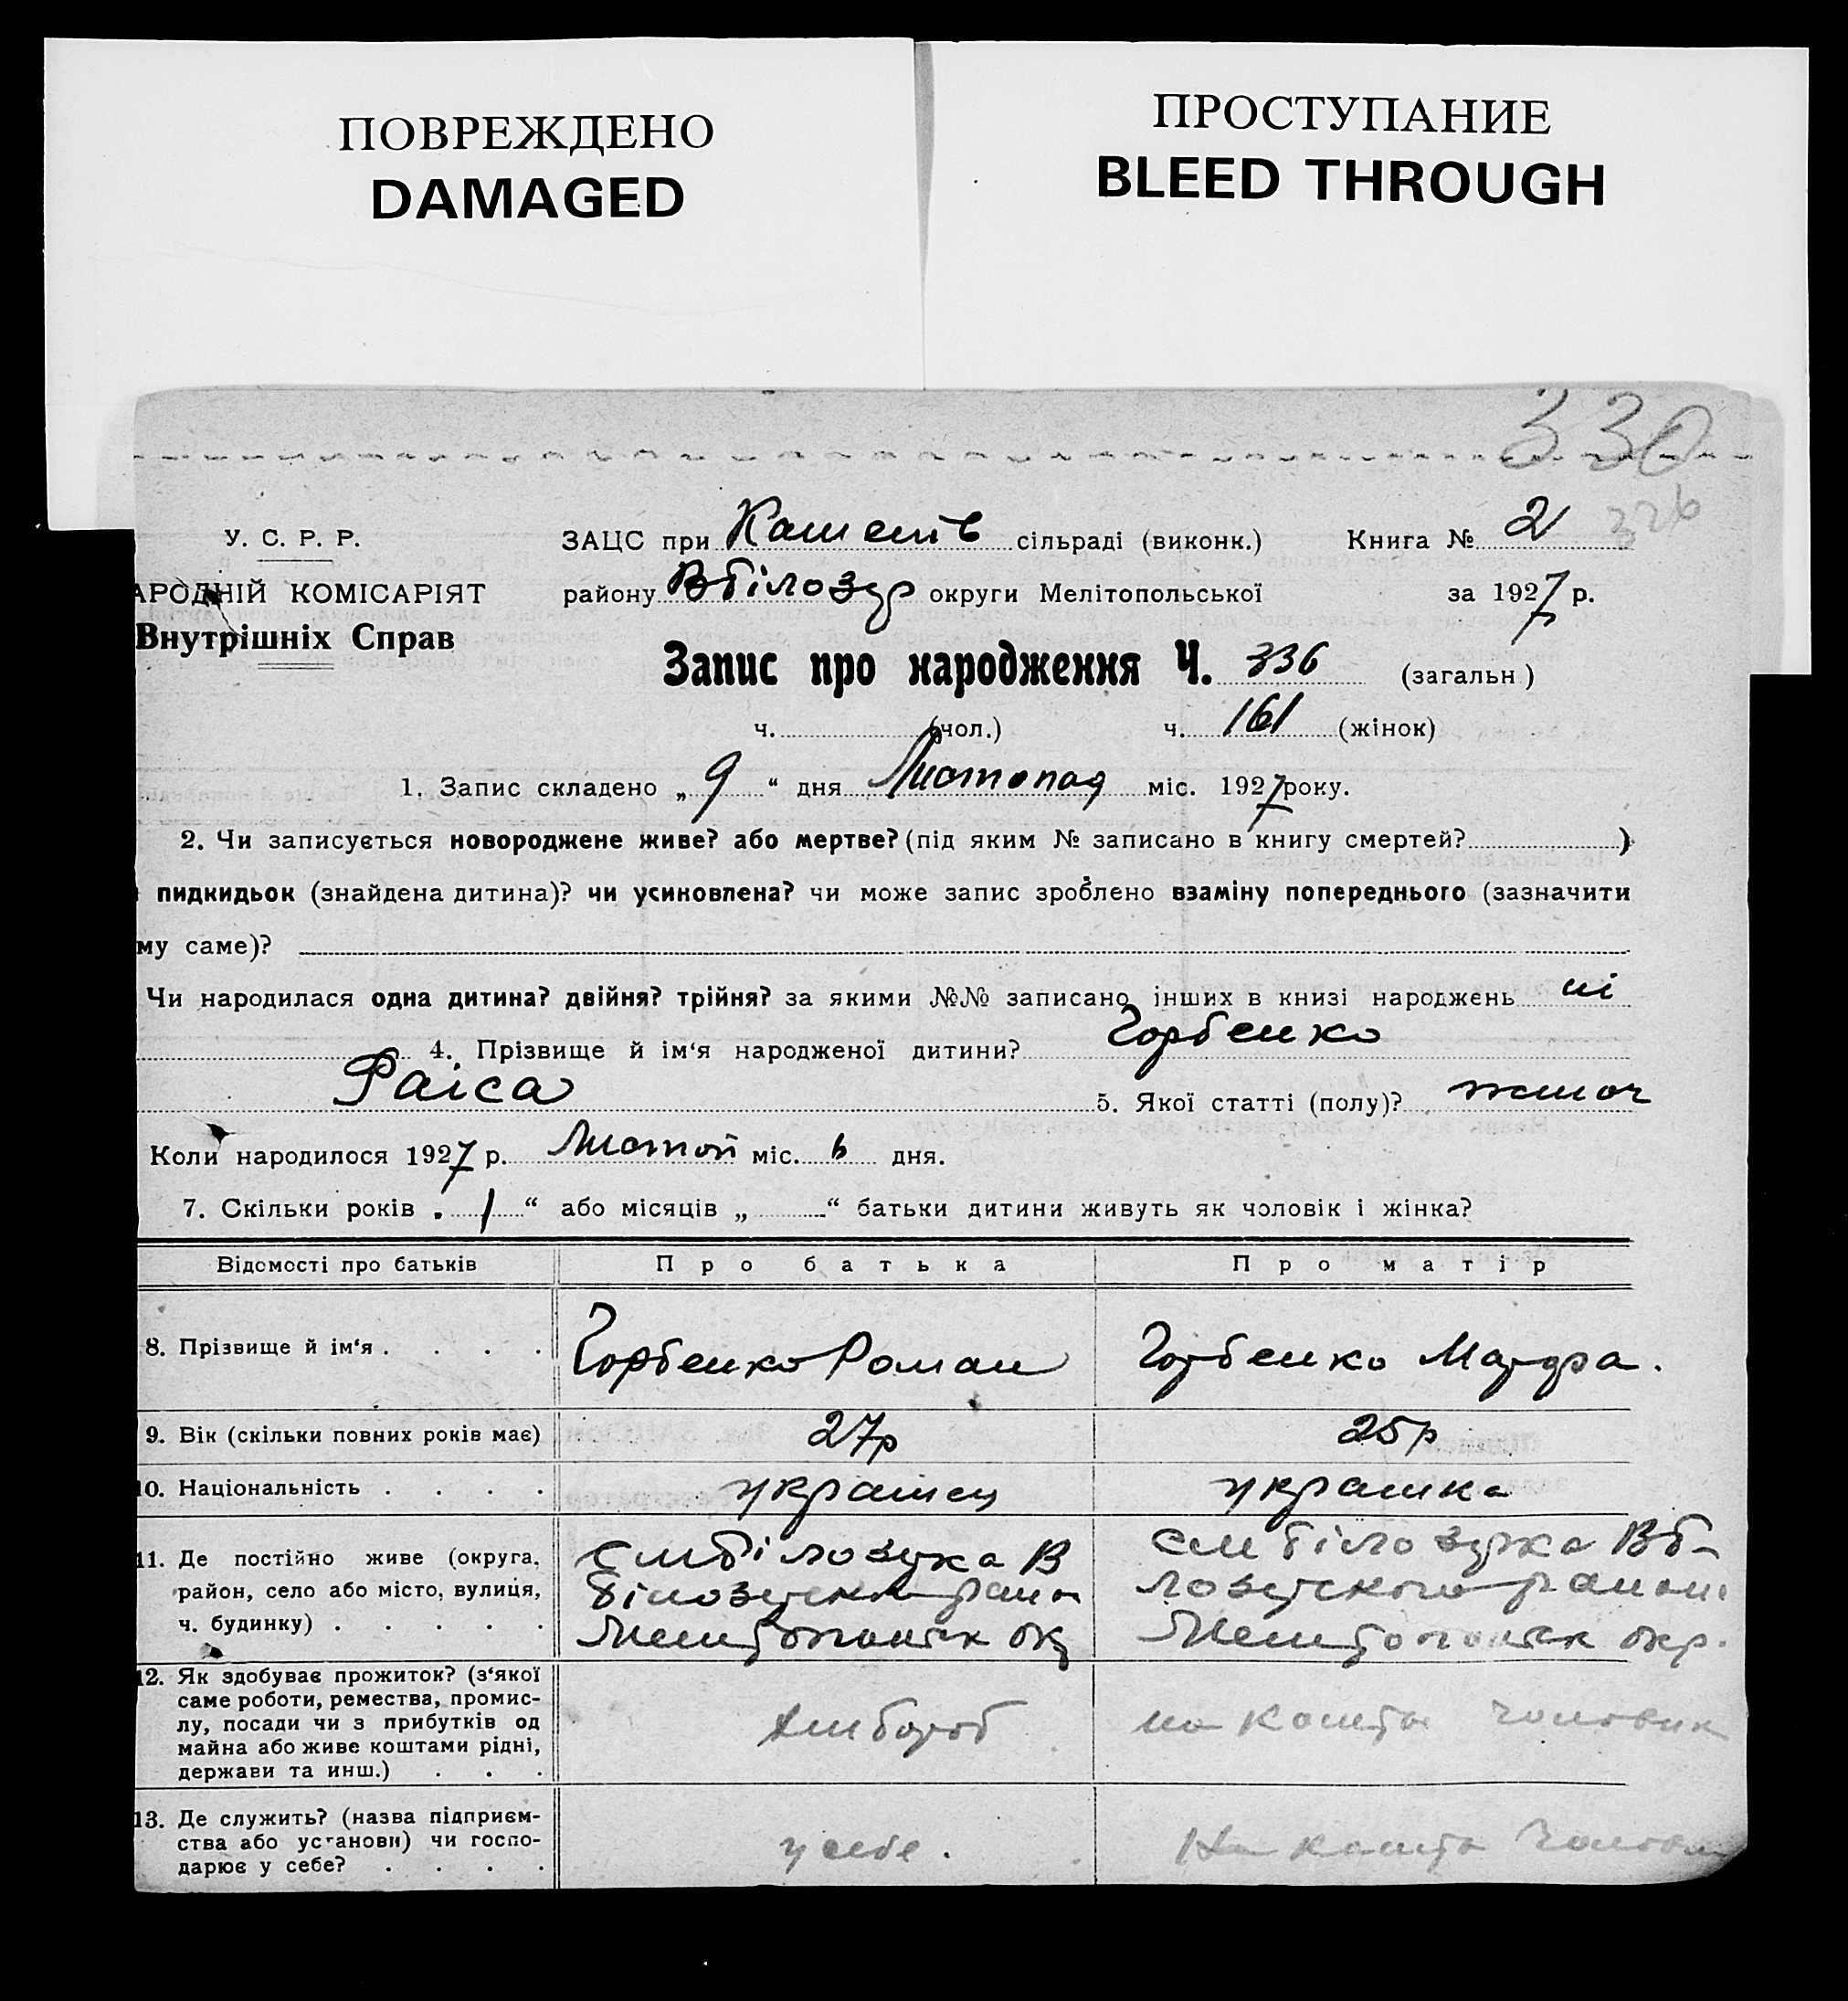 ПОВРЕЖДЕНО
DAMAGED
ПРОСТУПАНИЕ
BLEED THROUGH
330
326
У. С. Р. Р.
АРОДНІЙ КОМІСАРІЯТ
Внутрішніх Справ
ЗАЦС при сільраді (виконк.) Книга № 2
району Вбілозур округи Мелітопольської за 1927 р.
Запис про народження Ч. 336 (загальн)
ч. (чол.) ч. 161 (жінок)
1. Запис складено „ 9 “ дня Листопад міс. 1927 року.
2. Чи записується новороджене живе? або мертве? (під яким № записано в книгу смертей? )
пидкидьок (знайдена дитина)? чи усиновлена? чи може запис зроблено взаміну попереднього (зазначити
му саме)?
Чи народилася одна дитина? двійня? трійня? за якими №№ записано інших в книзі народжень ні
4. Прізвище й ім‘я народженої дитини? Горбенко
Раіса 5. Якої статті (полу)? жіноч
Коли народилося 1927 р. Листоп міс. 6 дня.
7. Скільки років „ 1 “ або місяців „ “ батьки дитини живуть як чоловік і жінка?
Відомості про батьків Про батька Про матір
8. Прізвище й ім‘я . . . . Горбенко Роман Горбенко
9. Вік (скільки повних років має) 27р 25р
10. Національність . . . . українец українка
11. Де постійно живе (округа, білозурка В білозурка Вбі-
район, село або місто, вулиця, білозурск район лозурского району
ч. будинку) . . . . . Мелитопольск окр Мелитопольск окр.
12. Як здобуває прожиток? (з‘якої
саме роботи, ремества, промис-
лу, посади чи з прибутків од хлибороб на кошты чоловика
майна або живе коштами рідні,
держави та инш.) . . .
13. Де служить? (назва підприєм-
ства або установи) чи госпо- у себе. На кошты чоловик
дарює у себе? . . . .